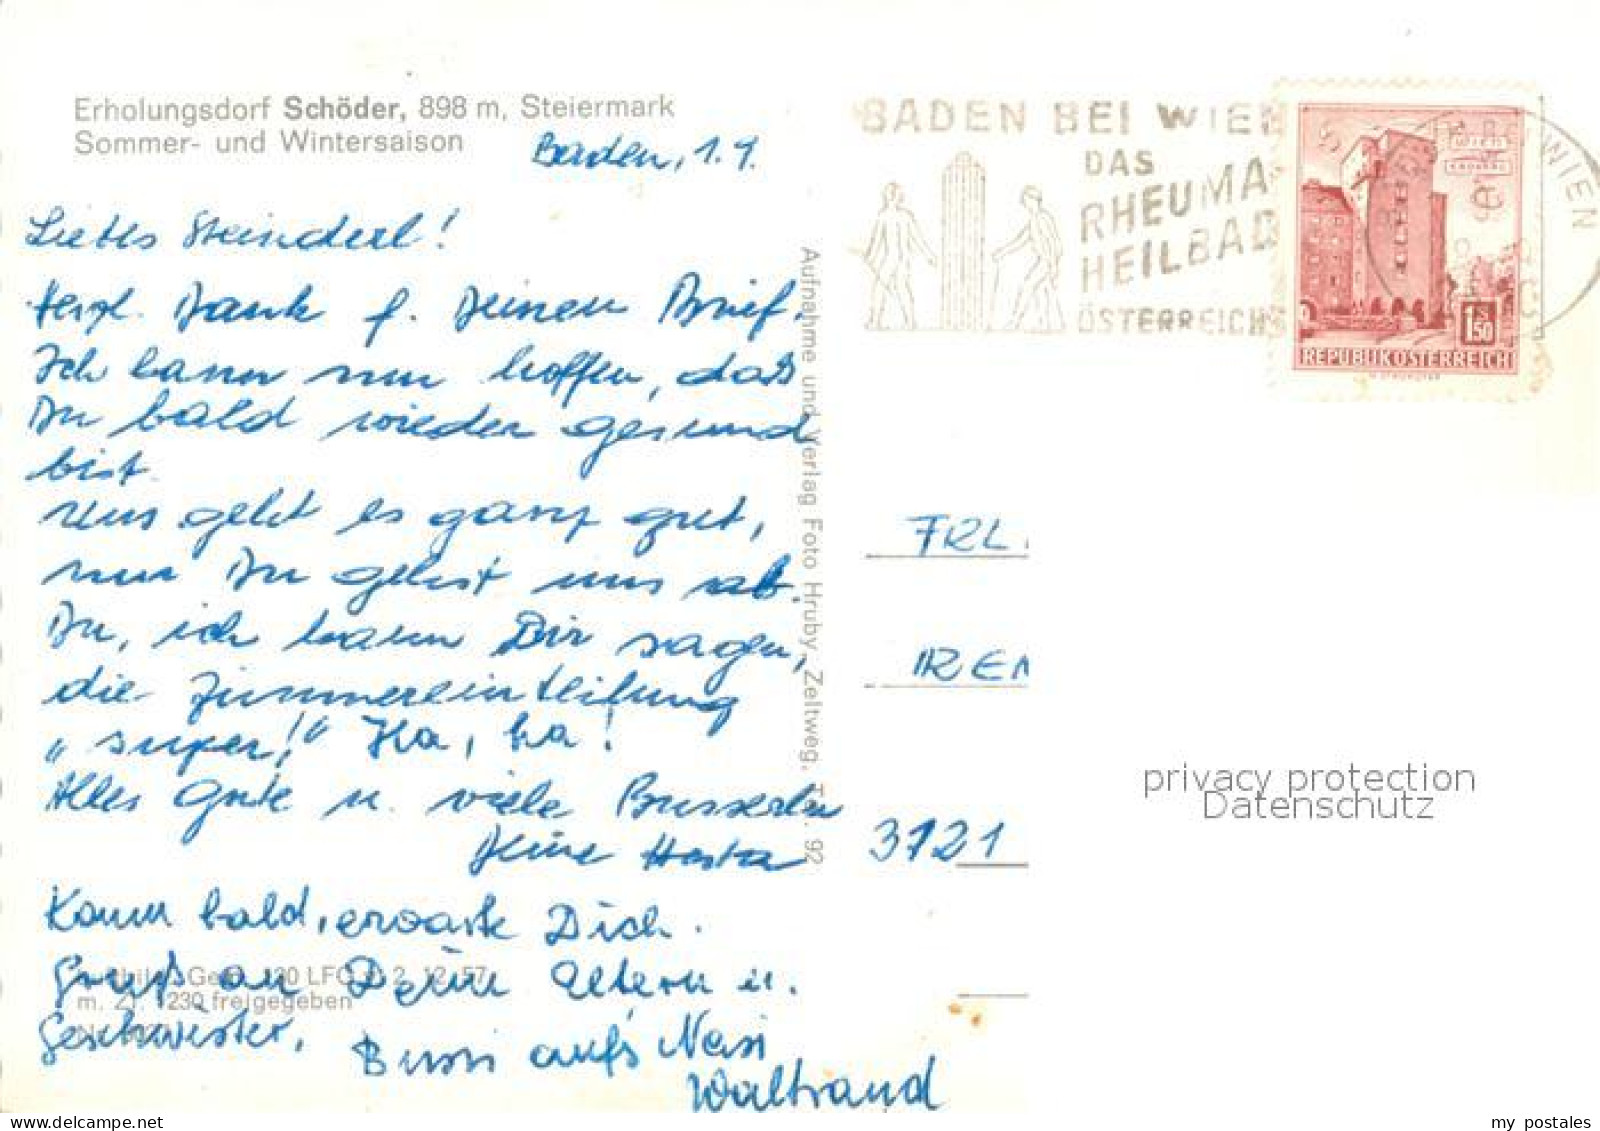 Erholungsdorf Schöder, 898 m, Steiermark
Sommer- und Wintersaison
Baden, 1.9.
Liebes Steinderl!
Herzl. Dank f. Deinen Brief.
Ich kann nur hoffen, daß
Du bald wieder gesund
bist.
Uns geht es ganz gut,
nur Du gehst uns ab.
Du, ich kann Dir sagen,
die Zimmereinteilung
"super!" Ha, ha!
Alles Gute u. viele Busserln
Deine Herta
Komm bald, erwarte Dich.
Gruß an Deine Eltern u.
Geschwister.
Bussi aufs Nasi
Waltraud
LFG v. 2. 12. 57
m. Zl. 1230 freigegeben
Aufnahme und Verlag Foto Hruby, Zeltweg, Tel. 92
BADEN BEI WIEN
DAS
RHEUMA
HEILBAD
ÖSTERREICHS
WIEN
1 S 50
REPUBLIK ÖSTERREICH
FRL.
IREN
3121
privacy protection
Datenschutz
my postales